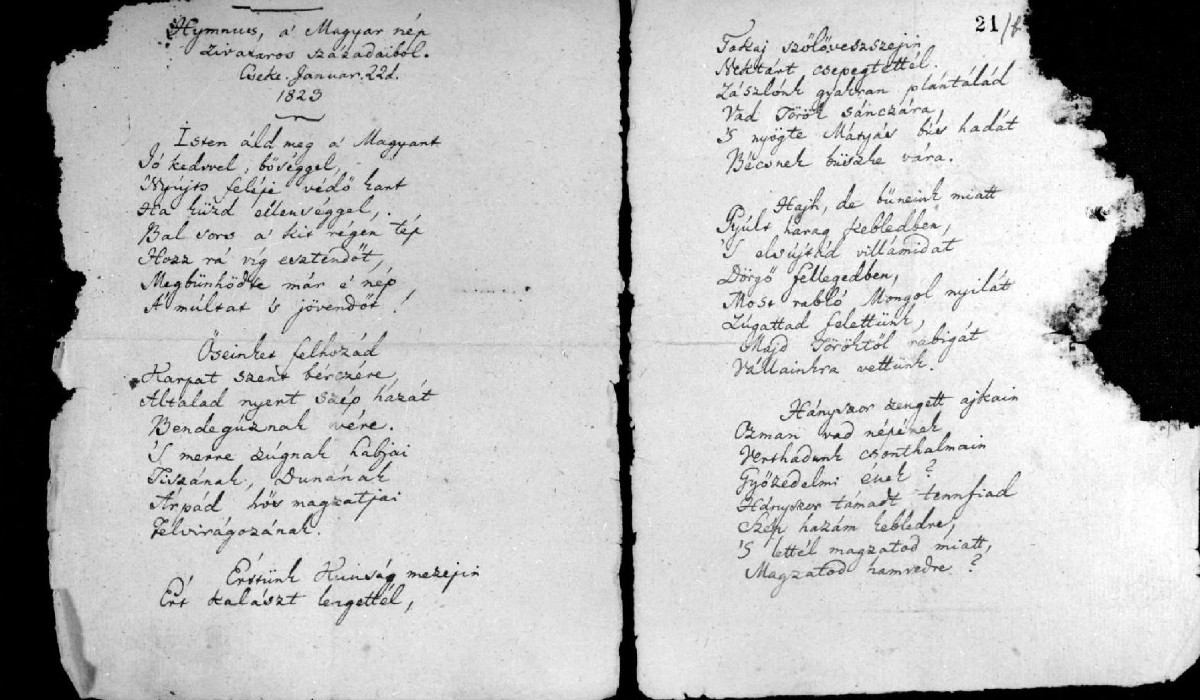 Hymnus, a' Magyar nép
zivataros századaiból.
Cseke. Januar. 22d.
1823
Isten áld meg a' Magyart
Jó kedvvel, bőséggel,
Nyújts feléje védő kart
Ha küzd ellenséggel,
Bal sors a' kit régen tép
Hozz rá víg esztendőt,
Megbűnhödte már e' nép
A' múltat 's jövendőt!
Őseinket felhozád
Karpat szent bérczére,
Általad nyert szép hazát
Bendegúznak vére.
'S merre zúgnak habjai
Tiszának, Dunának
Árpád' hős magzatjai
Felvirágozának.
Értünk Kunság mezejin
Ért kalászt lengettél,
21/b
Tokaj szőlővesszejin
Nektárt csepegtettél.
Zászlónk gyakran plántálád
Vad Török sánczára,
'S nyögte Mátyás bús hadát
Bécsnek büszke vára.
Hajh, de bűneink miatt
Gyúlt harag kebledben,
'S elsújtád villámidat
Dörgő fellegedben,
Most rabló Mongol nyilát
Zúgattad felettünk,
Majd Töröktől rabigát
Vállainkra vettünk.
Hányszor zengett ajkain
Ozman vad népének
Verthadunk csonthalmain
Győzedelmi ének?
Hányszor támadt tennfiad
Szép hazám kebledre,
'S lettél magzatod miatt,
Magzatod hamvedre?